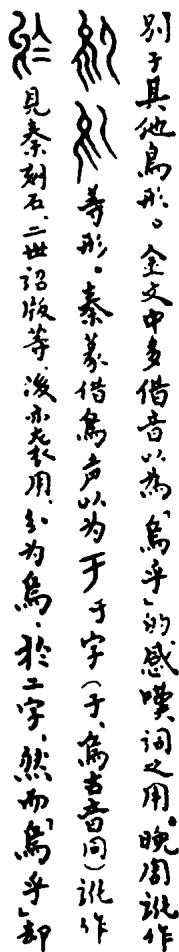 别于其他鳥形。金文中多借音以為「烏乎」的感嘆詞之用。晚周訛作
等形。秦篆借烏声以为于于字(于、烏古音同)訛作
見秦刻石、二世詔版等、後亦袭用、分为烏、於二字,然而「烏乎」却